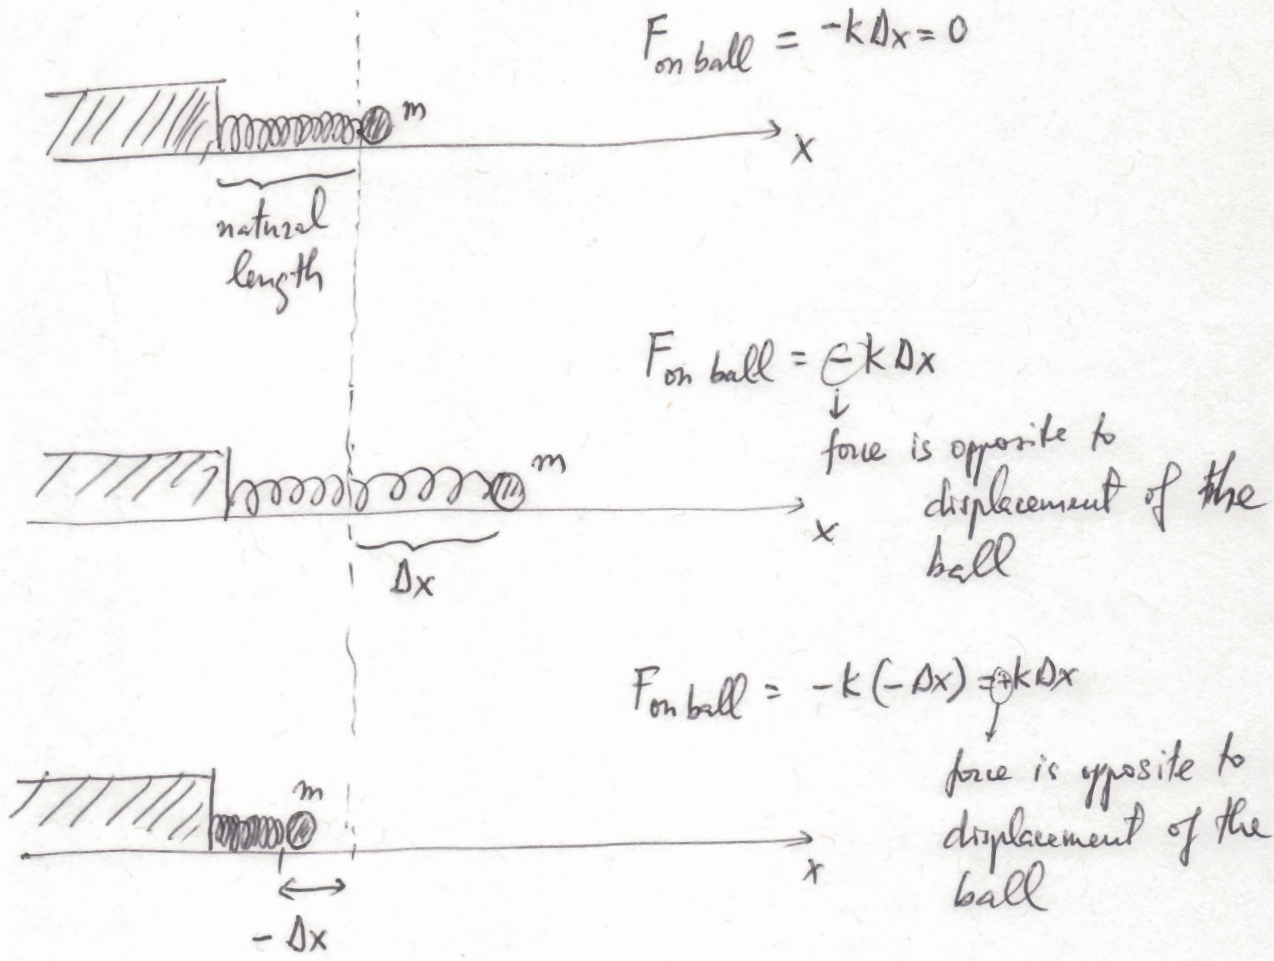 F on ball = -kΔx = 0
m
x
natural
length
F on ball = -kΔx
↓
force is opposite to
displacement of the
ball
m
x
Δx
F on ball = -k(-Δx) = +kΔx
force is opposite to
displacement of the
ball
m
x
-Δx